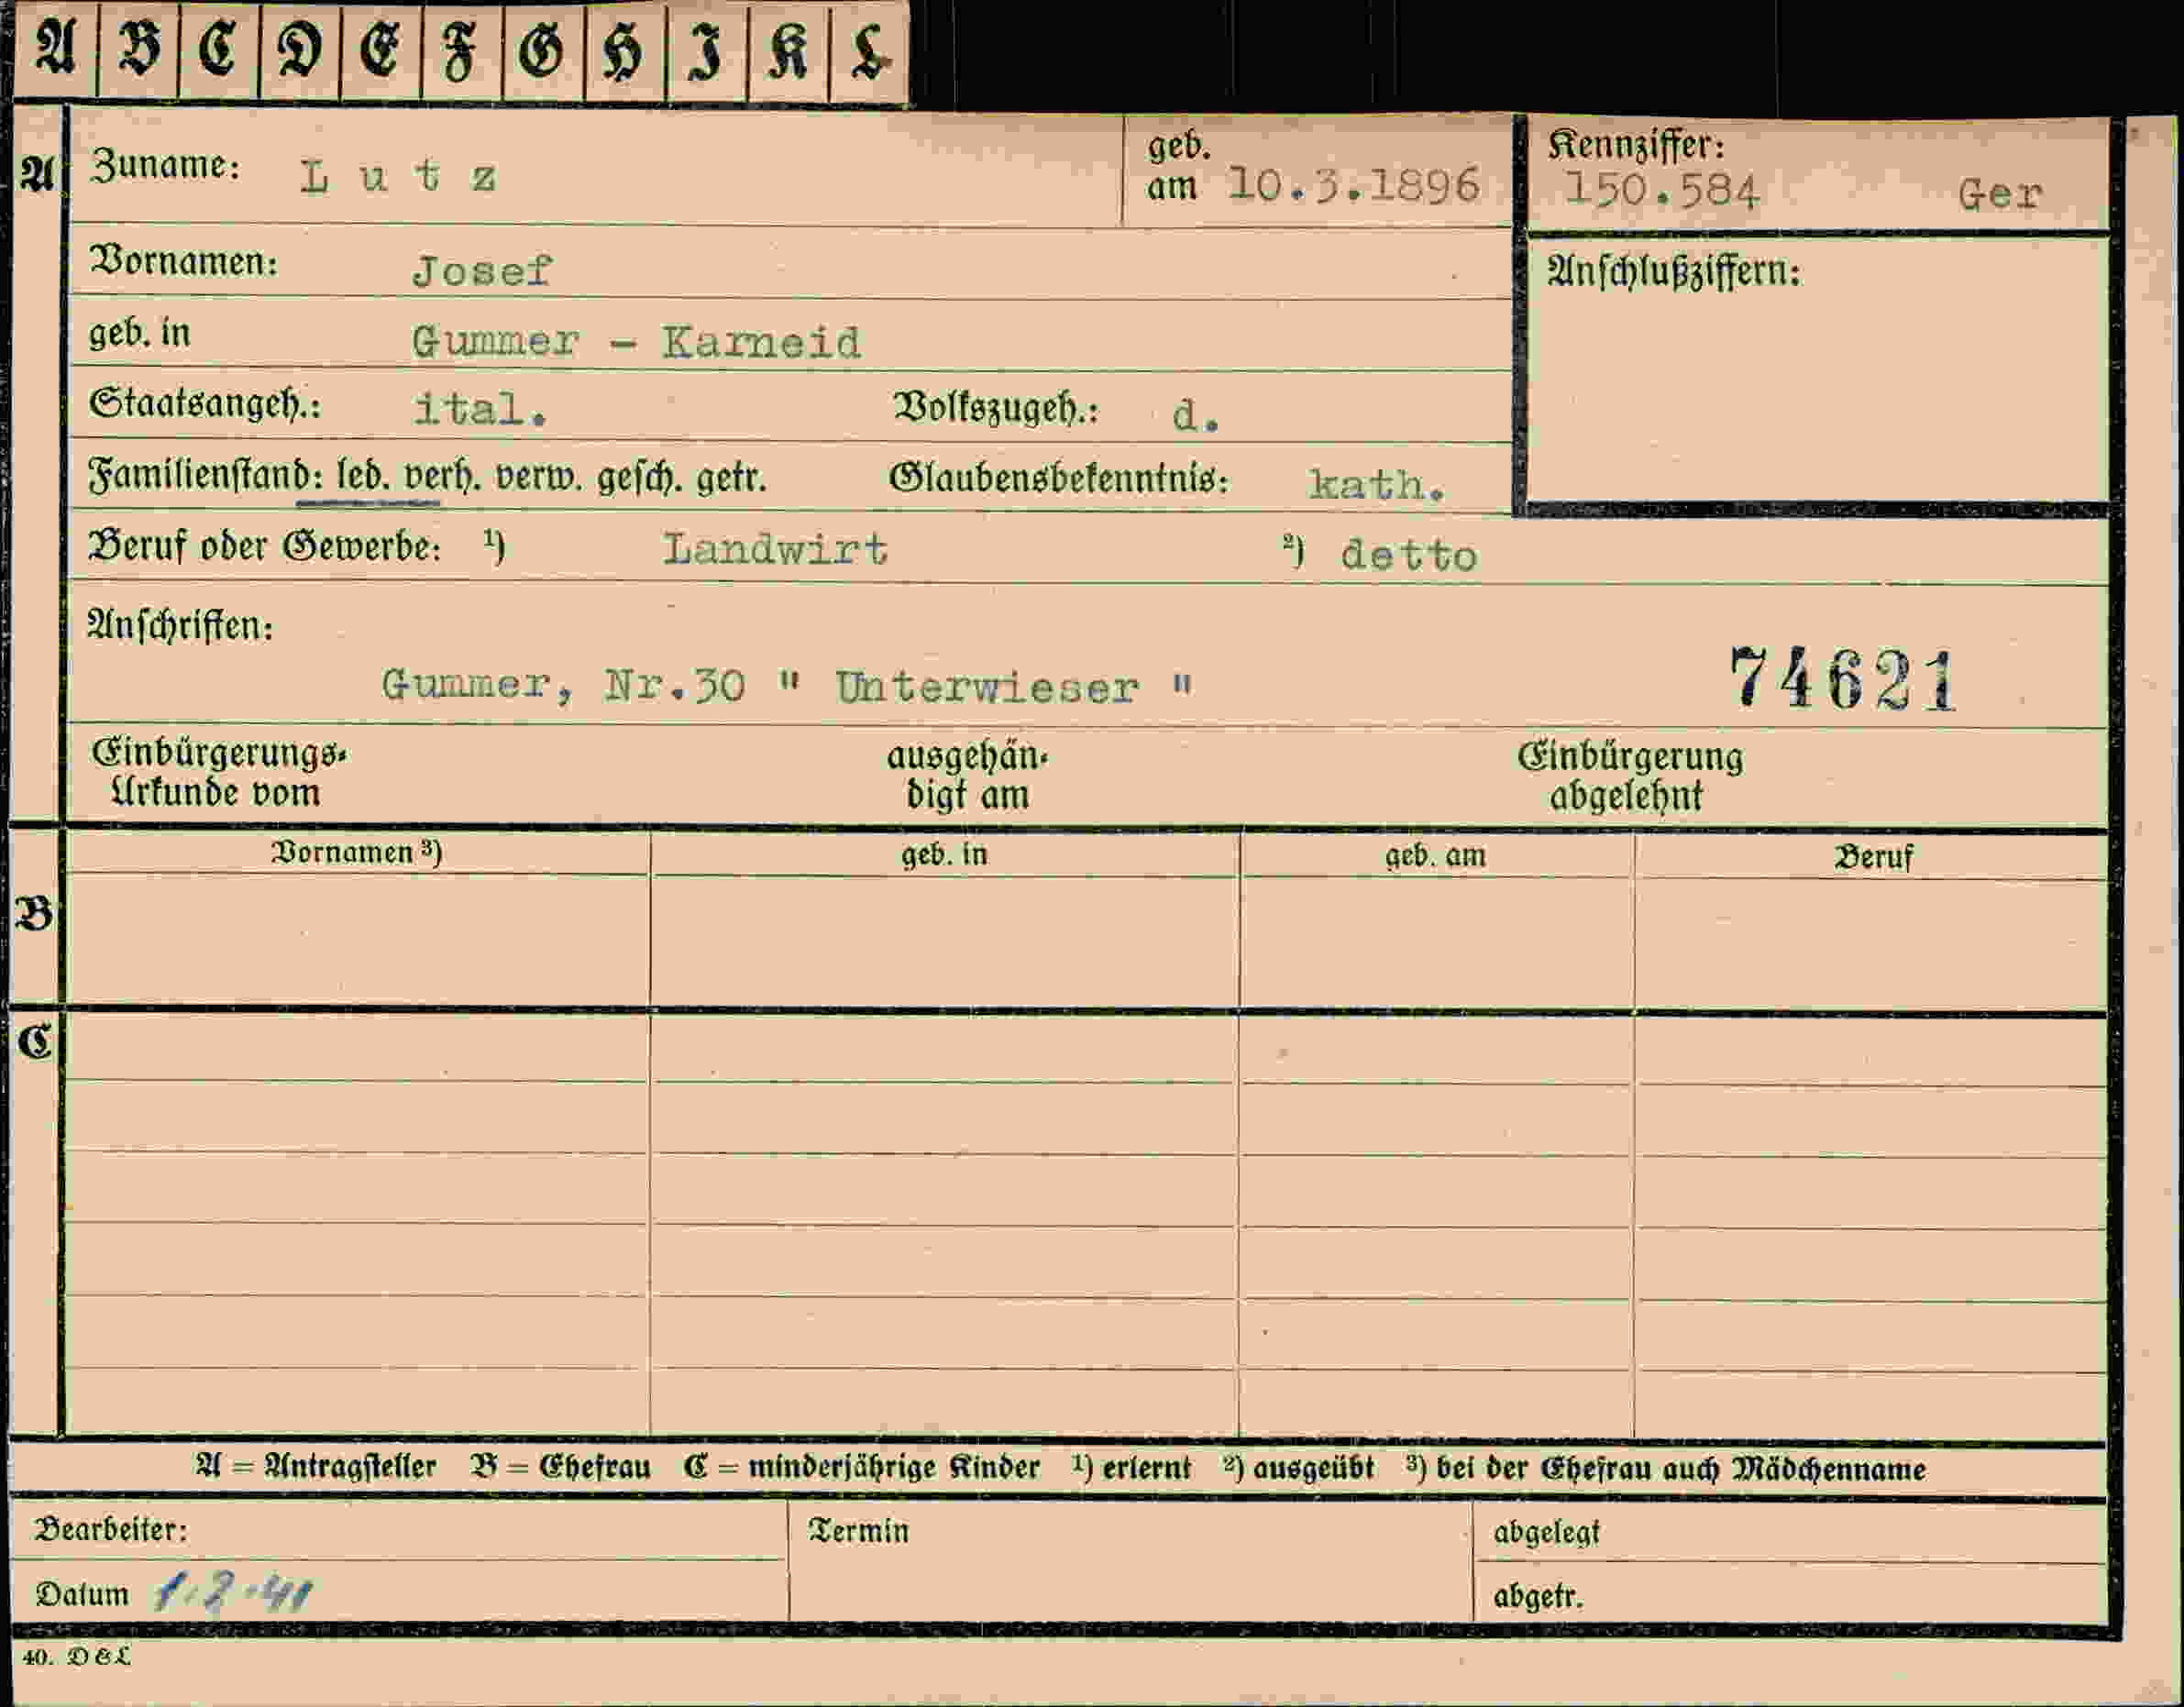 A B C D E F G H I K L
A Zuname: Lutz geb. am 10.3.1896 Kennziffer: 150.584 Ger
Vornamen: Josef Anschlußziffern:
geb. in Gummer - Karneid
Staatsangeh.: ital. Volkszugeh.: d.
Familienstand: led. verh. verw. gesch. getr. Glaubensbekenntnis: kath.
Beruf oder Gewerbe: ¹) Landwirt ²) detto
Anschriften:
Gummer, Nr.30 " Unterwieser " 74621
Einbürgerungs- ausgehän- Einbürgerung
Urkunde vom digt am abgelehnt
Vornamen ³) geb. in geb. am Beruf
B
C
A = Antragsteller B = Ehefrau C = minderjährige Kinder ¹) erlernt ²) ausgeübt ³) bei der Ehefrau auch Mädchenname
Bearbeiter: Termin abgelegt
Datum 1.2.41 abgetr.
40. D & L